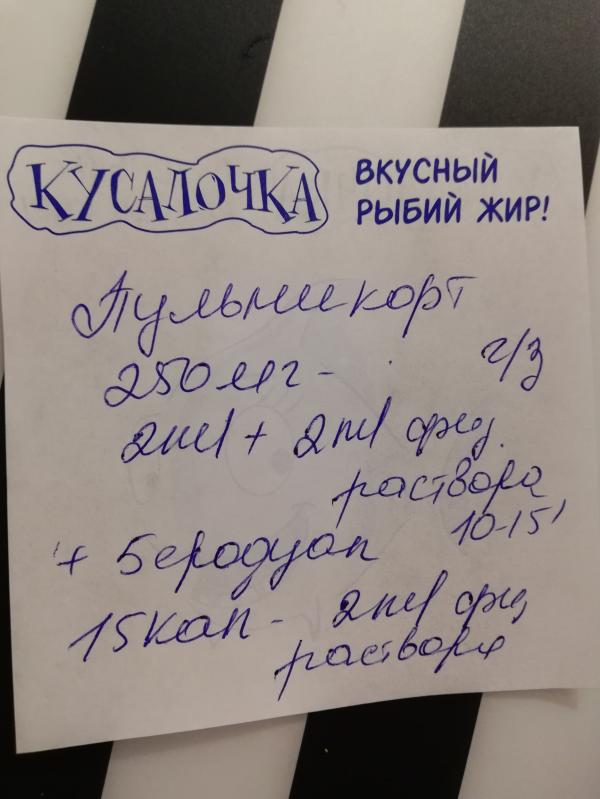 КУСАЛОЧКА
ВКУСНЫЙ
РЫБИЙ ЖИР!
Пульмикорт
250 мг -
ч/з
2ml + 2ml физ.
раствора
10-15'
+ Беродуал
15 кап - 2ml физ
раствора